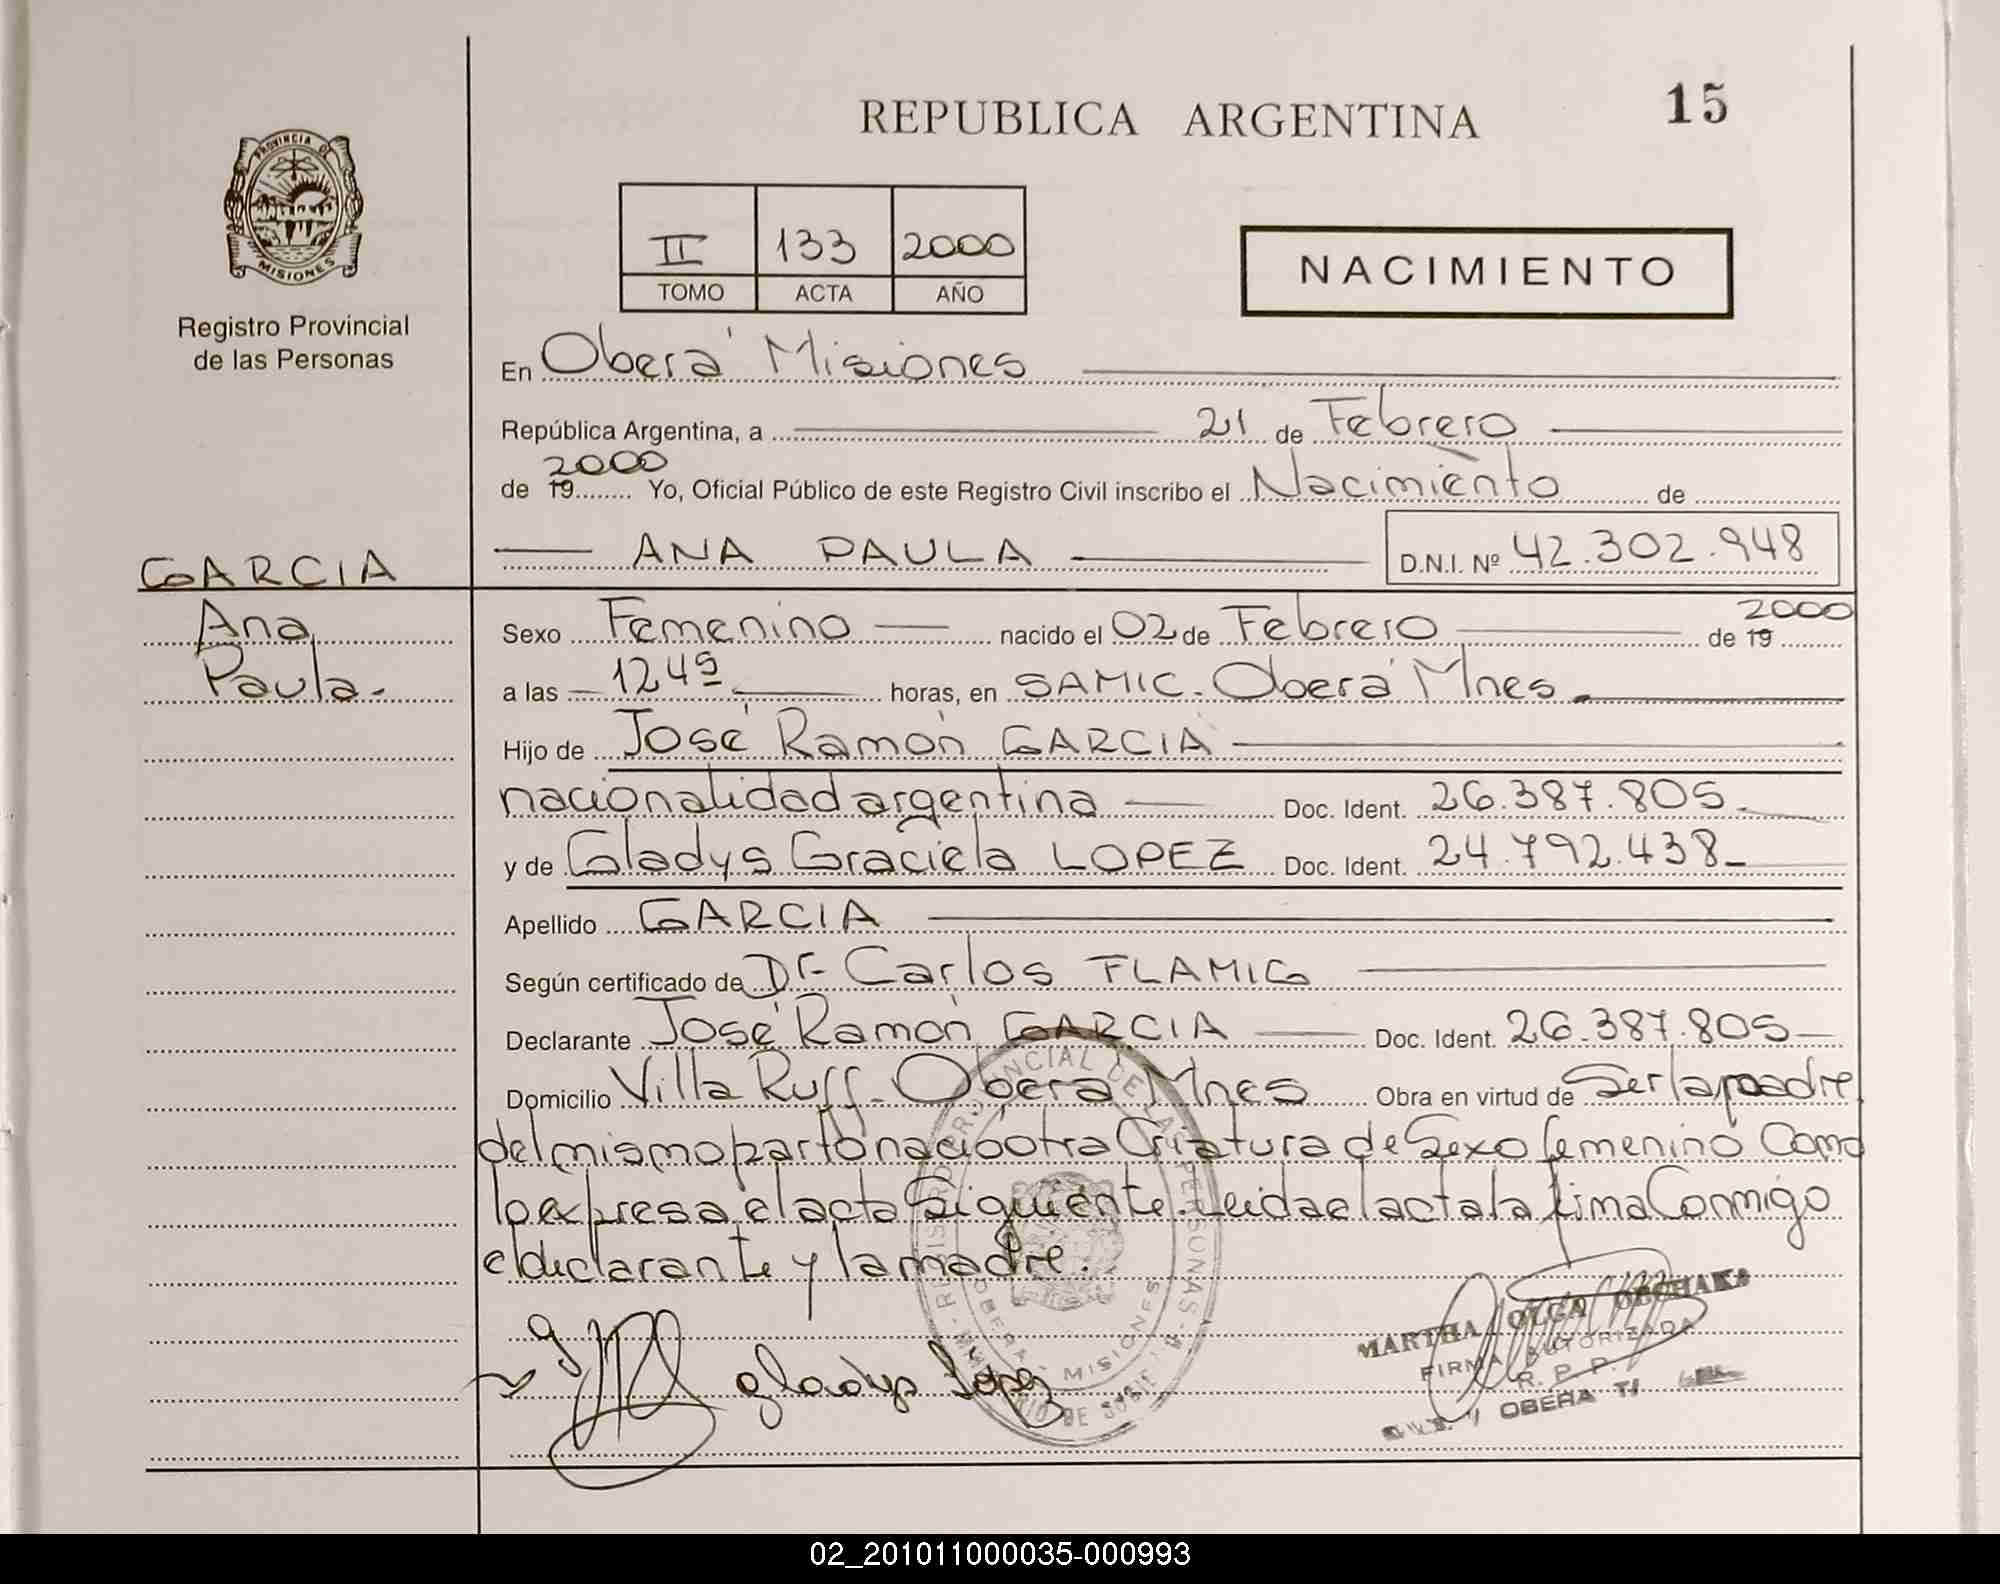 REPUBLICA ARGENTINA
15
PROVINCIA DE
MISIONES
Registro Provincial
de las Personas
II 133 2000
TOMO ACTA AÑO
NACIMIENTO
En Oberá Misiones
República Argentina, a 21 de Febrero
2000
de 19 Yo, Oficial Público de este Registro Civil inscribo el Nacimiento de
ANA PAULA D.N.I. Nº 42.302.948
GARCIA
Ana
Paula.-
Sexo Femenino nacido el 02 de Febrero de 19 2000
a las 12 45 horas, en SAMIC. Oberá Mnes
Hijo de José Ramón GARCIA
nacionalidad argentina Doc. Ident. 26.387.805
y de Gladys Graciela LOPEZ Doc. Ident. 24.792.438
Apellido GARCIA
Según certificado de Dr. Carlos FLAMIG
Declarante José Ramón GARCIA Doc. Ident. 26.387.805
Domicilio Villa Ruff. Oberá Mnes Obra en virtud de Ser la padre
del mismo parto nació otra Criatura de Sexo femenino Como
lo expresa el acta Siguiente. Leida el acta la firma Conmigo
el declarante y la madre.
gladys lopez
REGISTRO PROVINCIAL DE LAS PERSONAS
OBERA - MISIONES
MARTHA OLGA
FIRMA AUTORIZADA
R. P. P.
OBERA
02_201011000035-000993